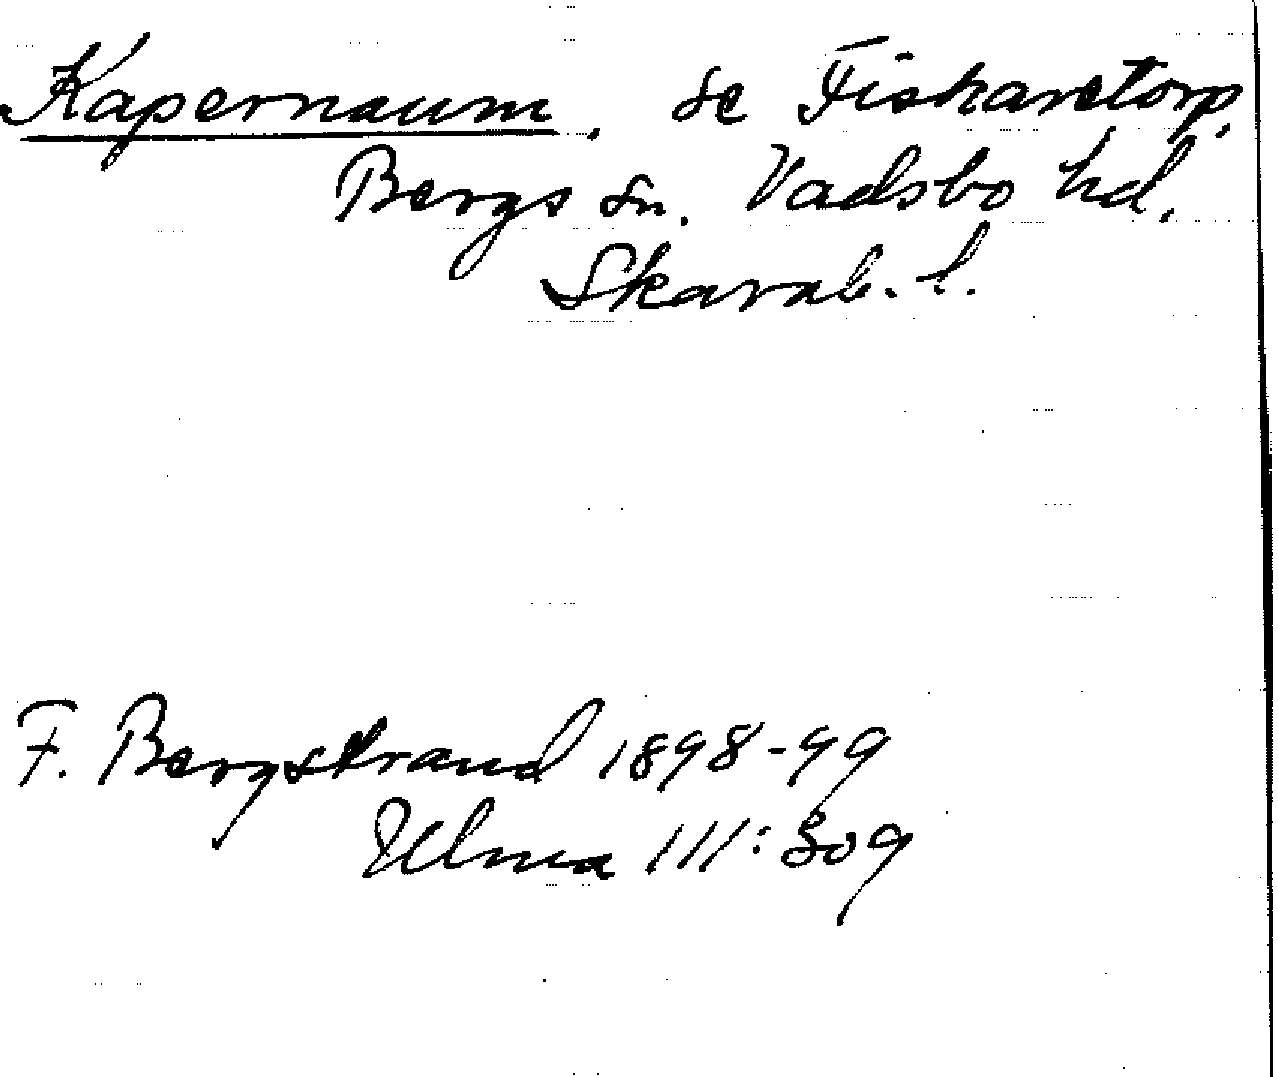 Kapernaum. se Fiskaretorp.
Bergs sn. Vadsbo hd.
Skarab. l.
F. Bergstrand 1898-99
Ulma 111:309